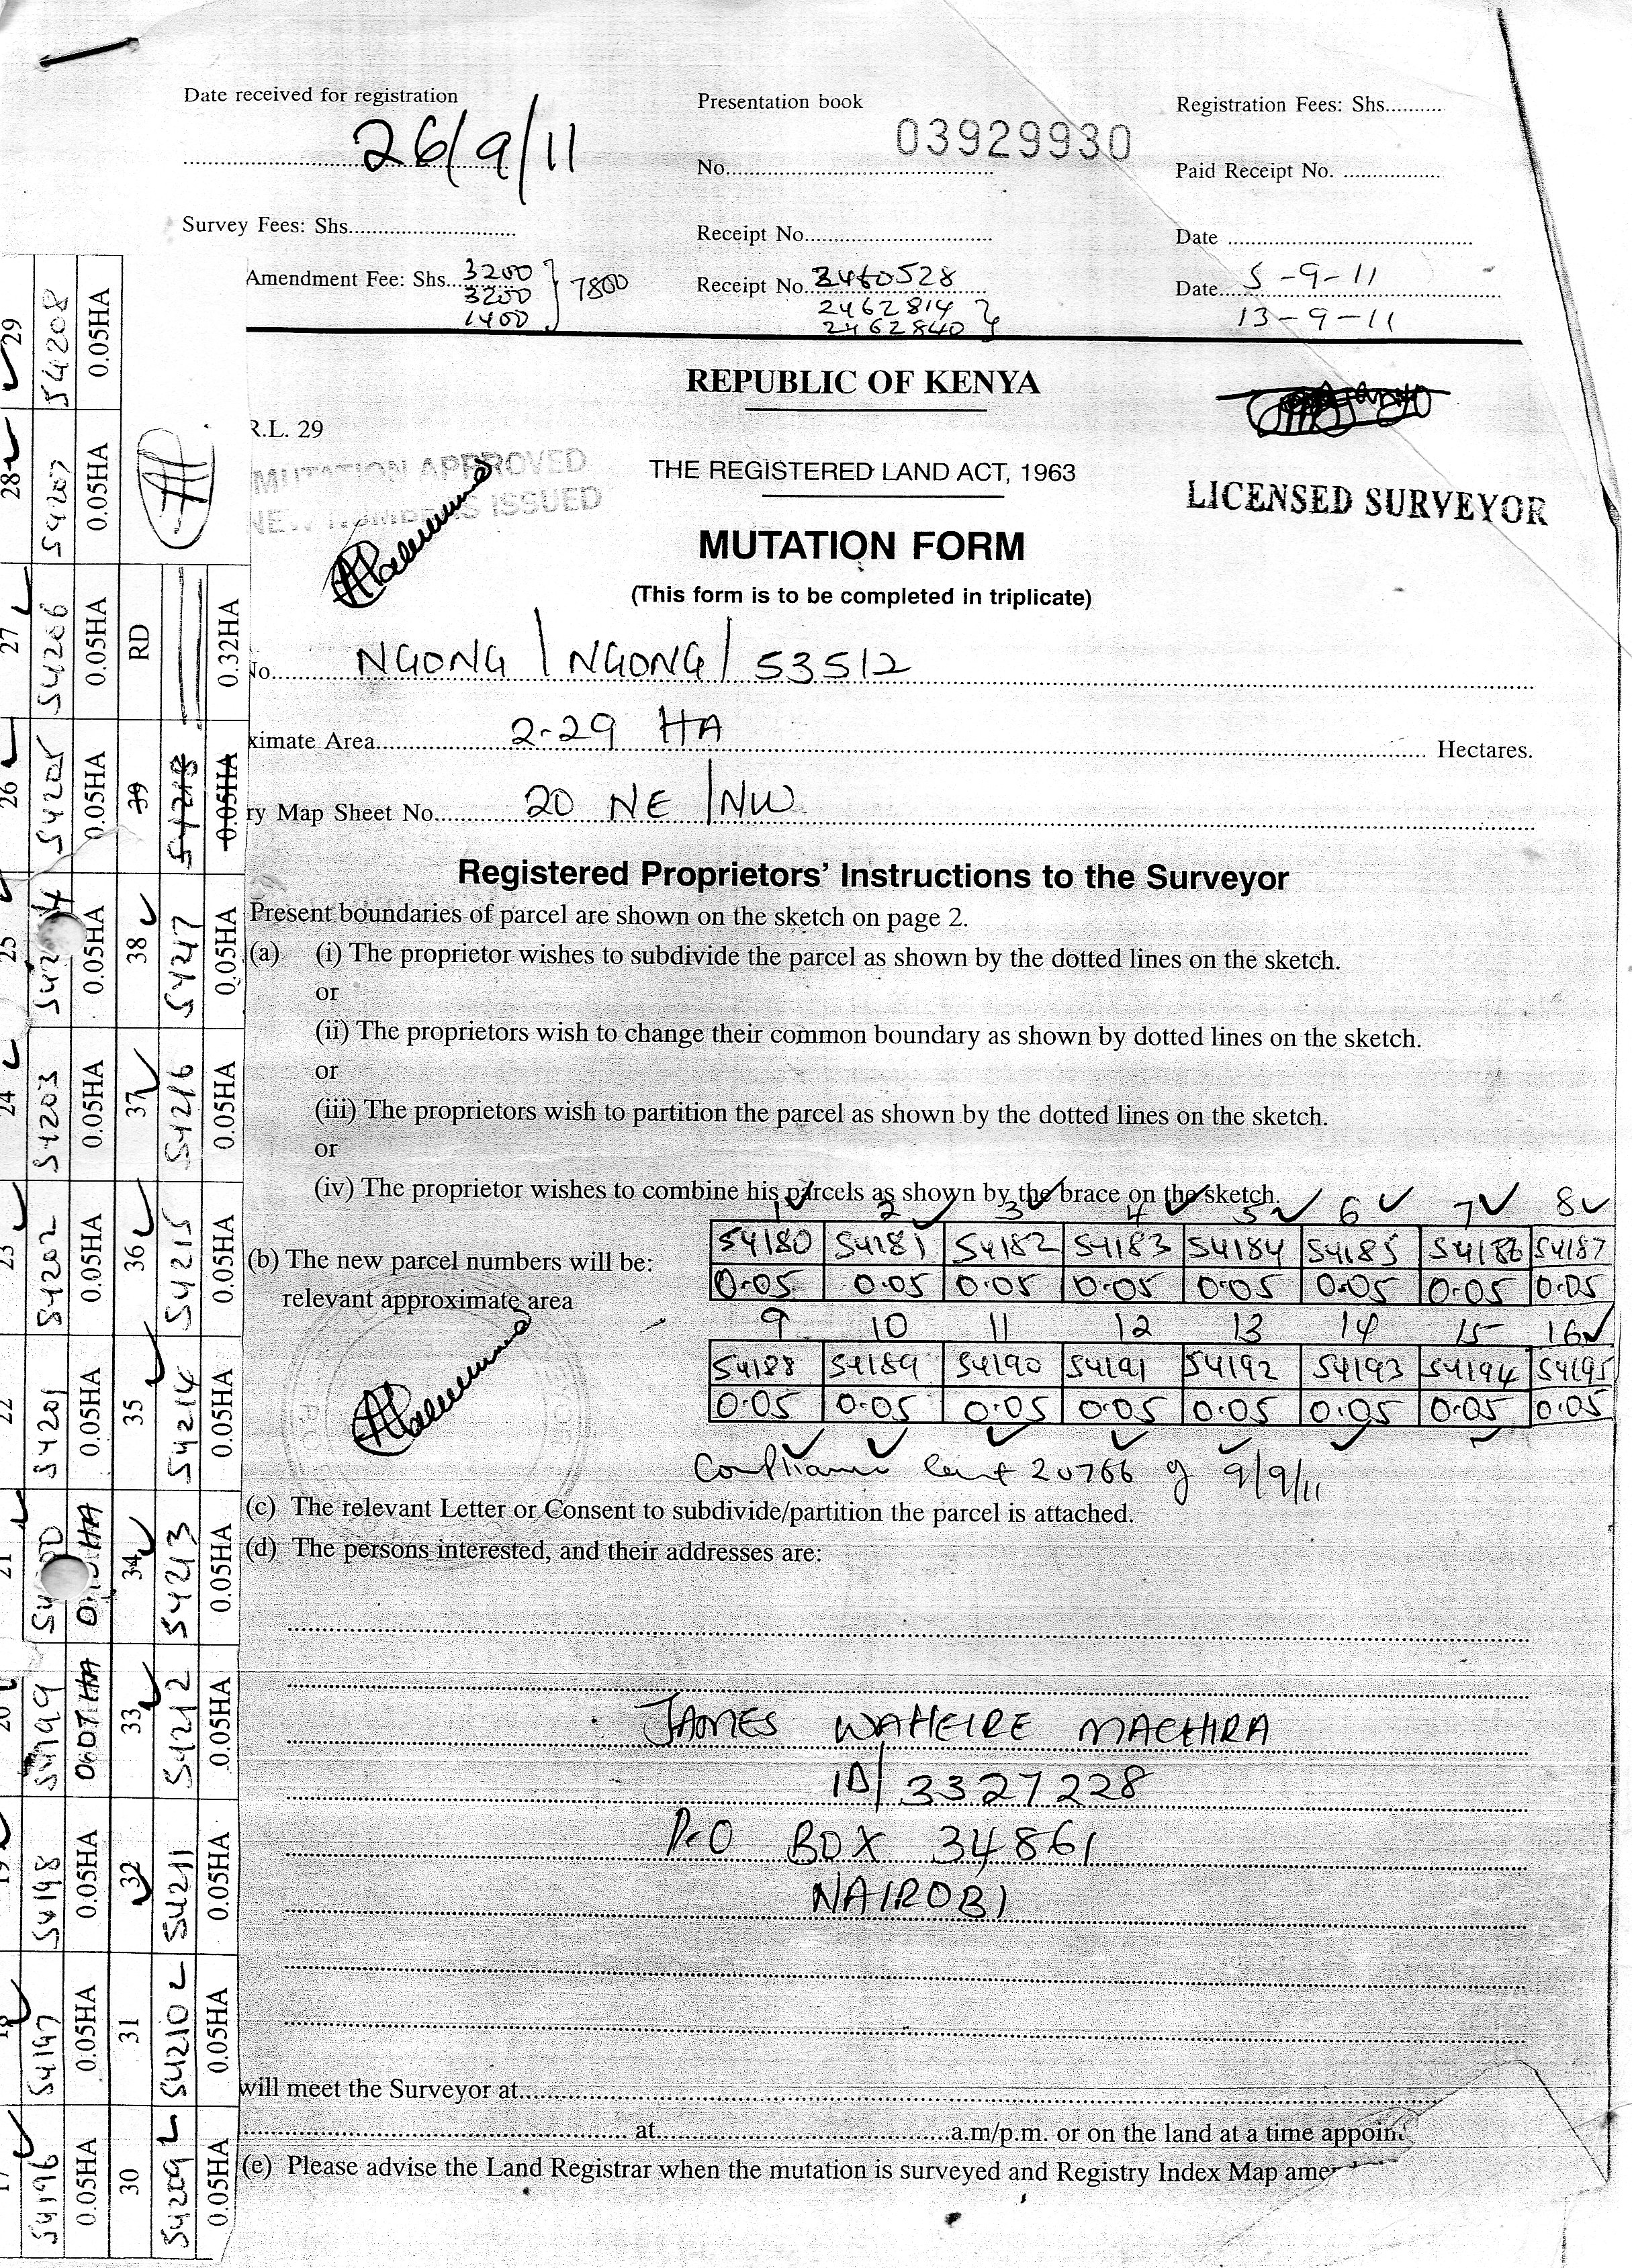 Date received for registration
26/9/11
Presentation book
No. 03929930
Registration Fees: Shs.
Paid Receipt No.
Survey Fees: Shs.
Receipt No.
Date
Amendment Fee: Shs. 3200
3200
1400
} 7800
Receipt No. 2460528
2462814
2462840
Date 5-9-11
13-9-11
REPUBLIC OF KENYA
R.L. 29
MUTATION APPROVED
NEW NUMBERS ISSUED
THE REGISTERED LAND ACT, 1963
LICENSED SURVEYOR
MUTATION FORM
(This form is to be completed in triplicate)
No. NGONG / NGONG / 53512
ximate Area 2-29 HA Hectares.
ry Map Sheet No. 20 NE / NW
Registered Proprietors' Instructions to the Surveyor
Present boundaries of parcel are shown on the sketch on page 2.
(a) (i) The proprietor wishes to subdivide the parcel as shown by the dotted lines on the sketch.
or
(ii) The proprietors wish to change their common boundary as shown by dotted lines on the sketch.
or
(iii) The proprietors wish to partition the parcel as shown by the dotted lines on the sketch.
or
(iv) The proprietor wishes to combine his parcels as shown by the brace on the sketch.
1 2 3 4 5 6 7 8
(b) The new parcel numbers will be:
54180 54181 54182 54183 54184 54185 54186 54187
relevant approximate area
0.05 0.05 0.05 0.05 0.05 0.05 0.05 0.05
9 10 11 12 13 14 15 16
54188 54189 54190 54191 54192 54193 54194 54195
0.05 0.05 0.05 0.05 0.05 0.05 0.05 0.05
Compliance cert 20766 of 9/9/11
(c) The relevant Letter or Consent to subdivide/partition the parcel is attached.
(d) The persons interested, and their addresses are:
JAMES WAHEIRE MACHIRA
ID/ 3327228
P.O BOX 34861
NAIROBI
will meet the Surveyor at
at a.m/p.m. or on the land at a time appoin
(e) Please advise the Land Registrar when the mutation is surveyed and Registry Index Map ame
17 18 19 20 21 22 23 24 25 26 27 28 29
54196 54197 54198 54199 54202 54203 54205 54206 54207 54208
54201
0.05HA 0.05HA 0.05HA 0.07HA 0.05HA 0.05HA 0.05HA 0.05HA 0.05HA 0.05HA 0.05HA 0.05HA
30 31 32 33 34 35 36 37 38 39 RD
54209 54210 54211 54212 54213 54214 54215 54216 54217 54218
0.05HA 0.05HA 0.05HA 0.05HA 0.05HA 0.05HA 0.05HA 0.05HA 0.05HA 0.05HA 0.32HA